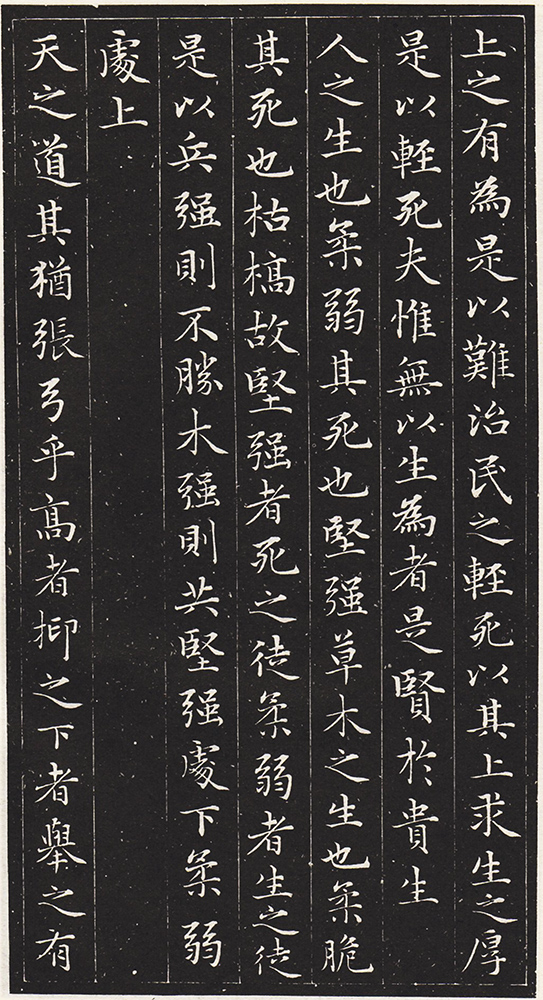 上之有為是以難治民之輕死以其上求生之厚
是以輕死夫惟無以生為者是賢於貴生
人之生也柔弱其死也堅强草木之生也柔脆
其死也枯槁故堅强者死之徒柔弱者生之徒
是以兵强則不勝木强則共堅强處下柔弱
處上
天之道其猶張弓乎高者抑之下者舉之有